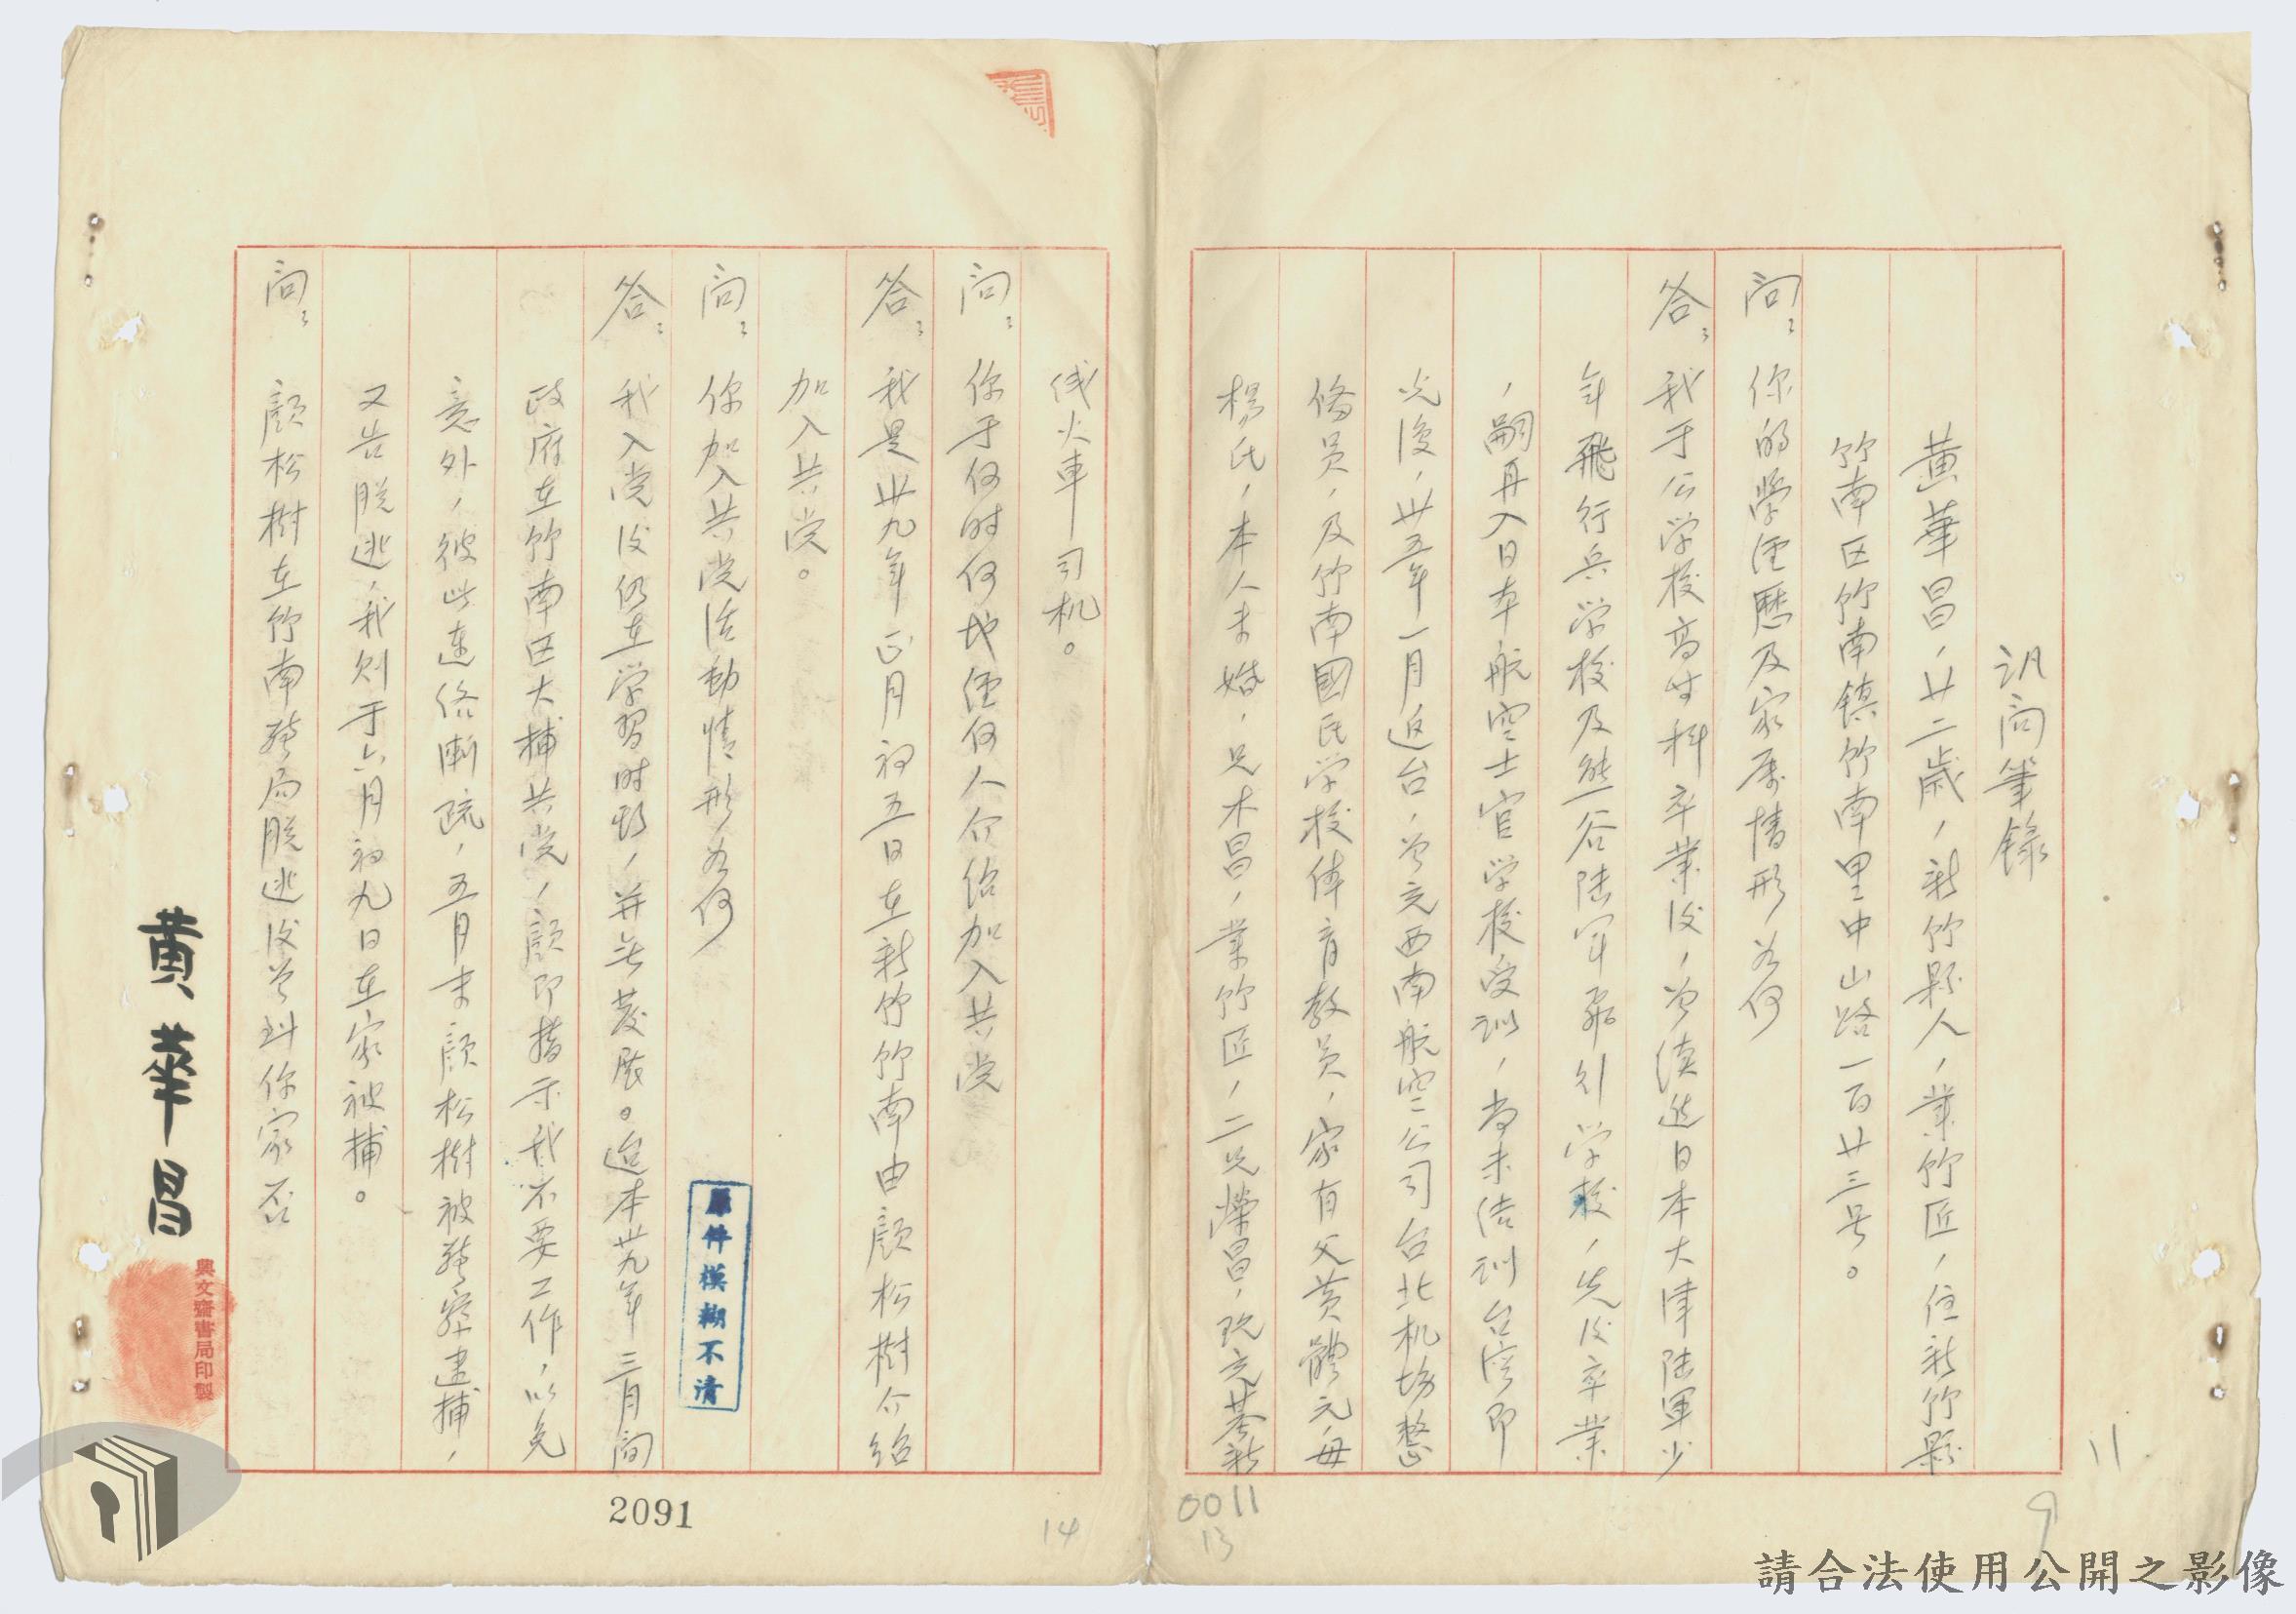 訊問筆錄
黃華昌，廿二歲，新竹縣人，業竹匠，住新竹縣
竹南区竹南鎮竹南里中山路一百廿三号。
問：你的学經歷及家庭情形為何
答：我于公学校高等科卒業後，曾續進日本大津陸軍少
年飛行兵学校及熊谷陸軍飛行学校，先後卒業
，嗣再入日本航空士官学校受訓，尚未結訓台灣即
光復，卅五年一月返台，曾充西南航空公司台北机場整
備員，及竹南國民学校体育教員，家有父黃體元，母
楊氏，本人未婚，兄木昌，業竹匠，二兄榮昌，現充基新
线火車司机。
問：你于何时何地經何人介紹加入共党
答：我是卅九年正月初五日在新竹竹南由顏松樹介紹
加入共党。
問：你加入共党活動情形為何
答：我入党後仍在学習时期，并无發展。迨本卅九年三月間
政府在竹南区大捕共党，顏即指示我不要工作，以免
意外，彼此連络漸疏，五月末顏松樹被警察逮捕，
又告脱逃，我則于六月初九日在家被捕。
問：顏松樹在竹南警局脱逃後曾到你家否
黃華昌
原件模糊不清
興文齋書局印製
2091
14
0011
13
11
9
請合法使用公開之影像